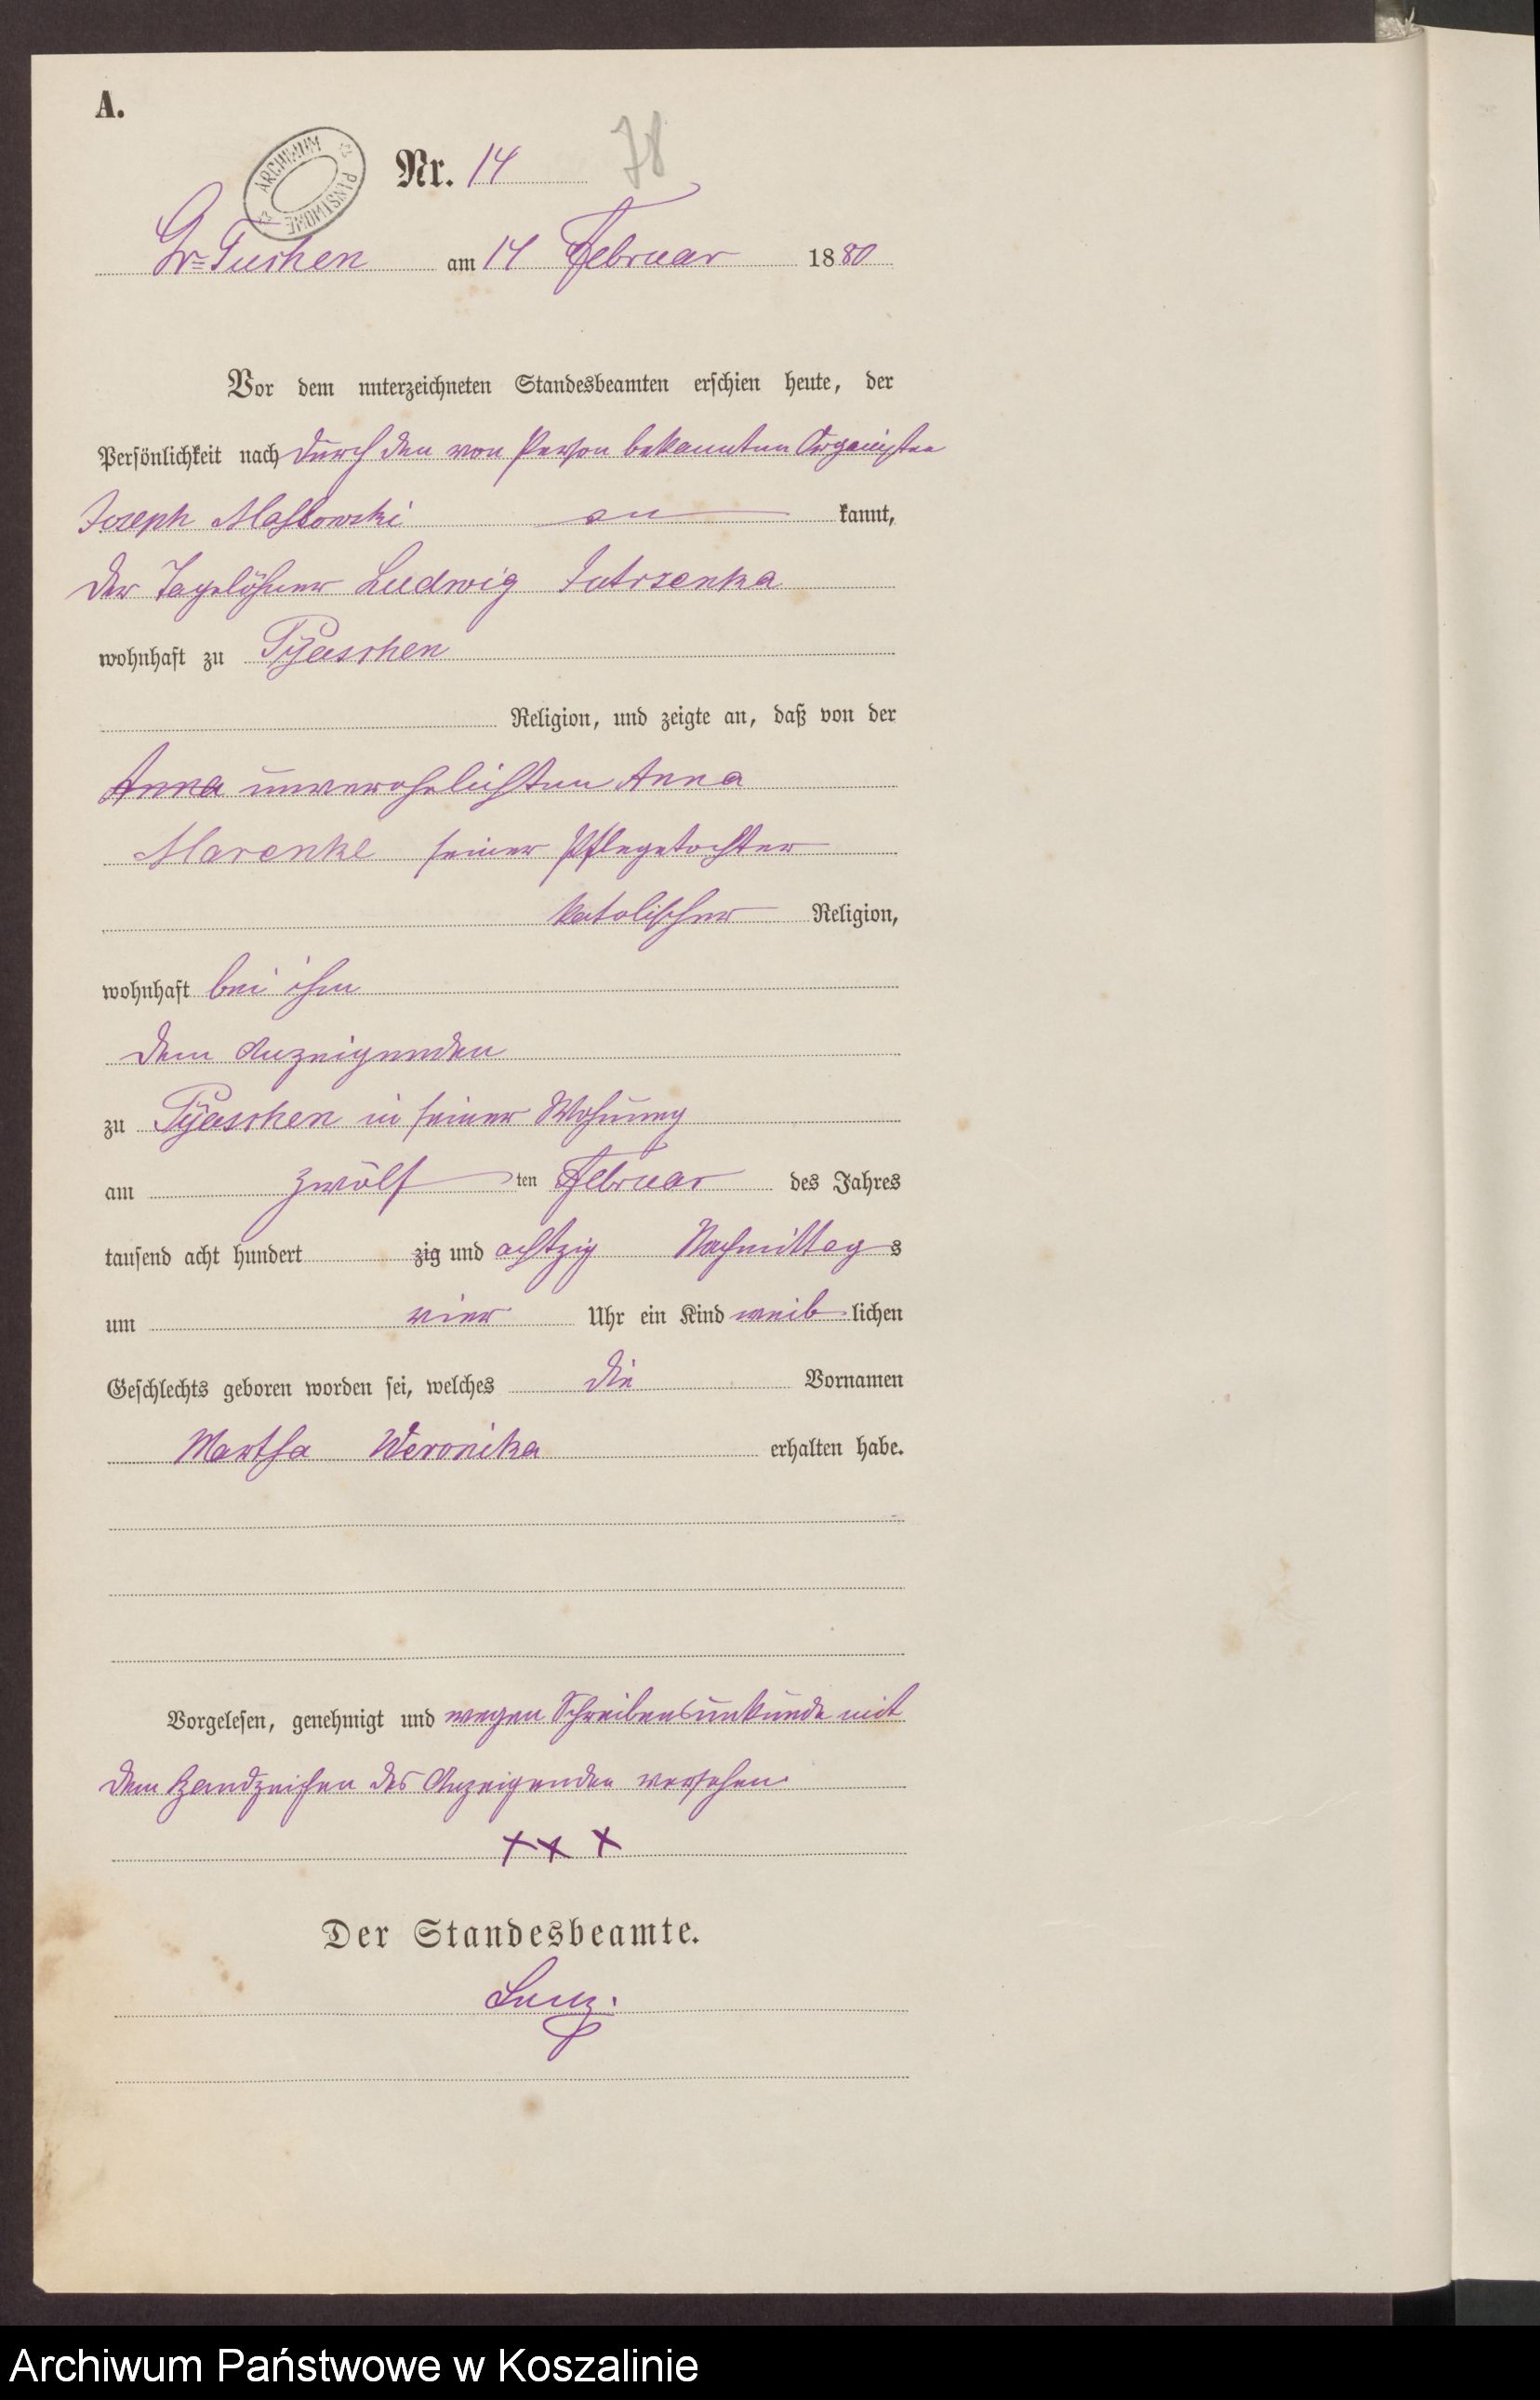 A.
ARCHIWUM PAŃSTWOWE
Nr. 14 78
Gr= Tuchen am 14 Februar 1880
Vor dem unterzeichneten Standesbeamten erschien heute, der
Persönlichkeit nach durch den von Person bekannten Organisten
Joseph Maslowski an kannt,
der Tagelöhner Ludwig Jutrzenka
wohnhaft zu Pyaschen
Religion, und zeigte an, daß von der
Anna unverehelichten Anna
Marenke seiner Pflegetochter
katolischer Religion,
wohnhaft bei ihm
dem Anzeigenden
zu Pyaschen in seiner Wohnung
am zwölf ten Februar des Jahres
tausend acht hundert zig und achtzig Nachmittags
um vier Uhr ein Kind weiblichen
Geschlechts geboren worden sei, welches die Vornamen
Martha Weronika erhalten habe.
Vorgelesen, genehmigt und wegen Schreibensunkunde mit
dem Handzeichen des Anzeigenden versehen.
+ + +
Der Standesbeamte.
Archiwum Państwowe w Koszalinie